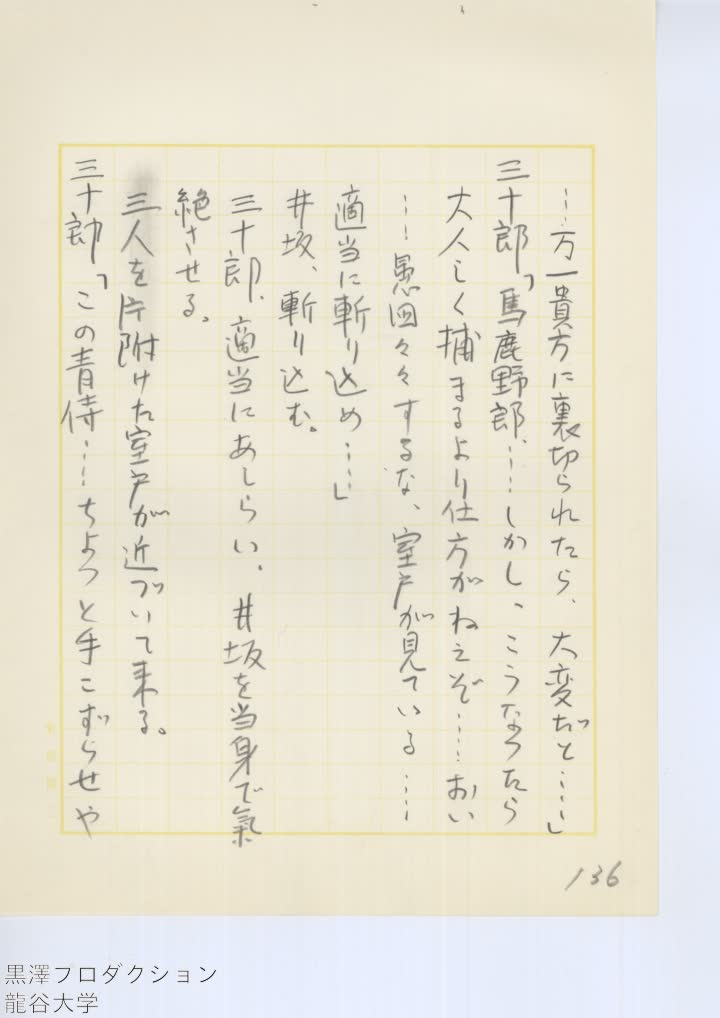 …万一貴方に裏切られたら、大変だと…」
三十郎「馬鹿野郎、…しかし、こうなつたら
大人しく捕まるより仕方がねえぞ…おい
…愚図々々するな、室戸が見ている…
適当に斬り込め…」
井坂、斬り込む。
三十郎、適当にあしらい、井坂を当身で氣
絶させる。
三人を片附けた室戸が近づいて来る。
三十郎「この青侍…ちよつと手こずらせや
136
黒澤プロダクション
龍谷大学